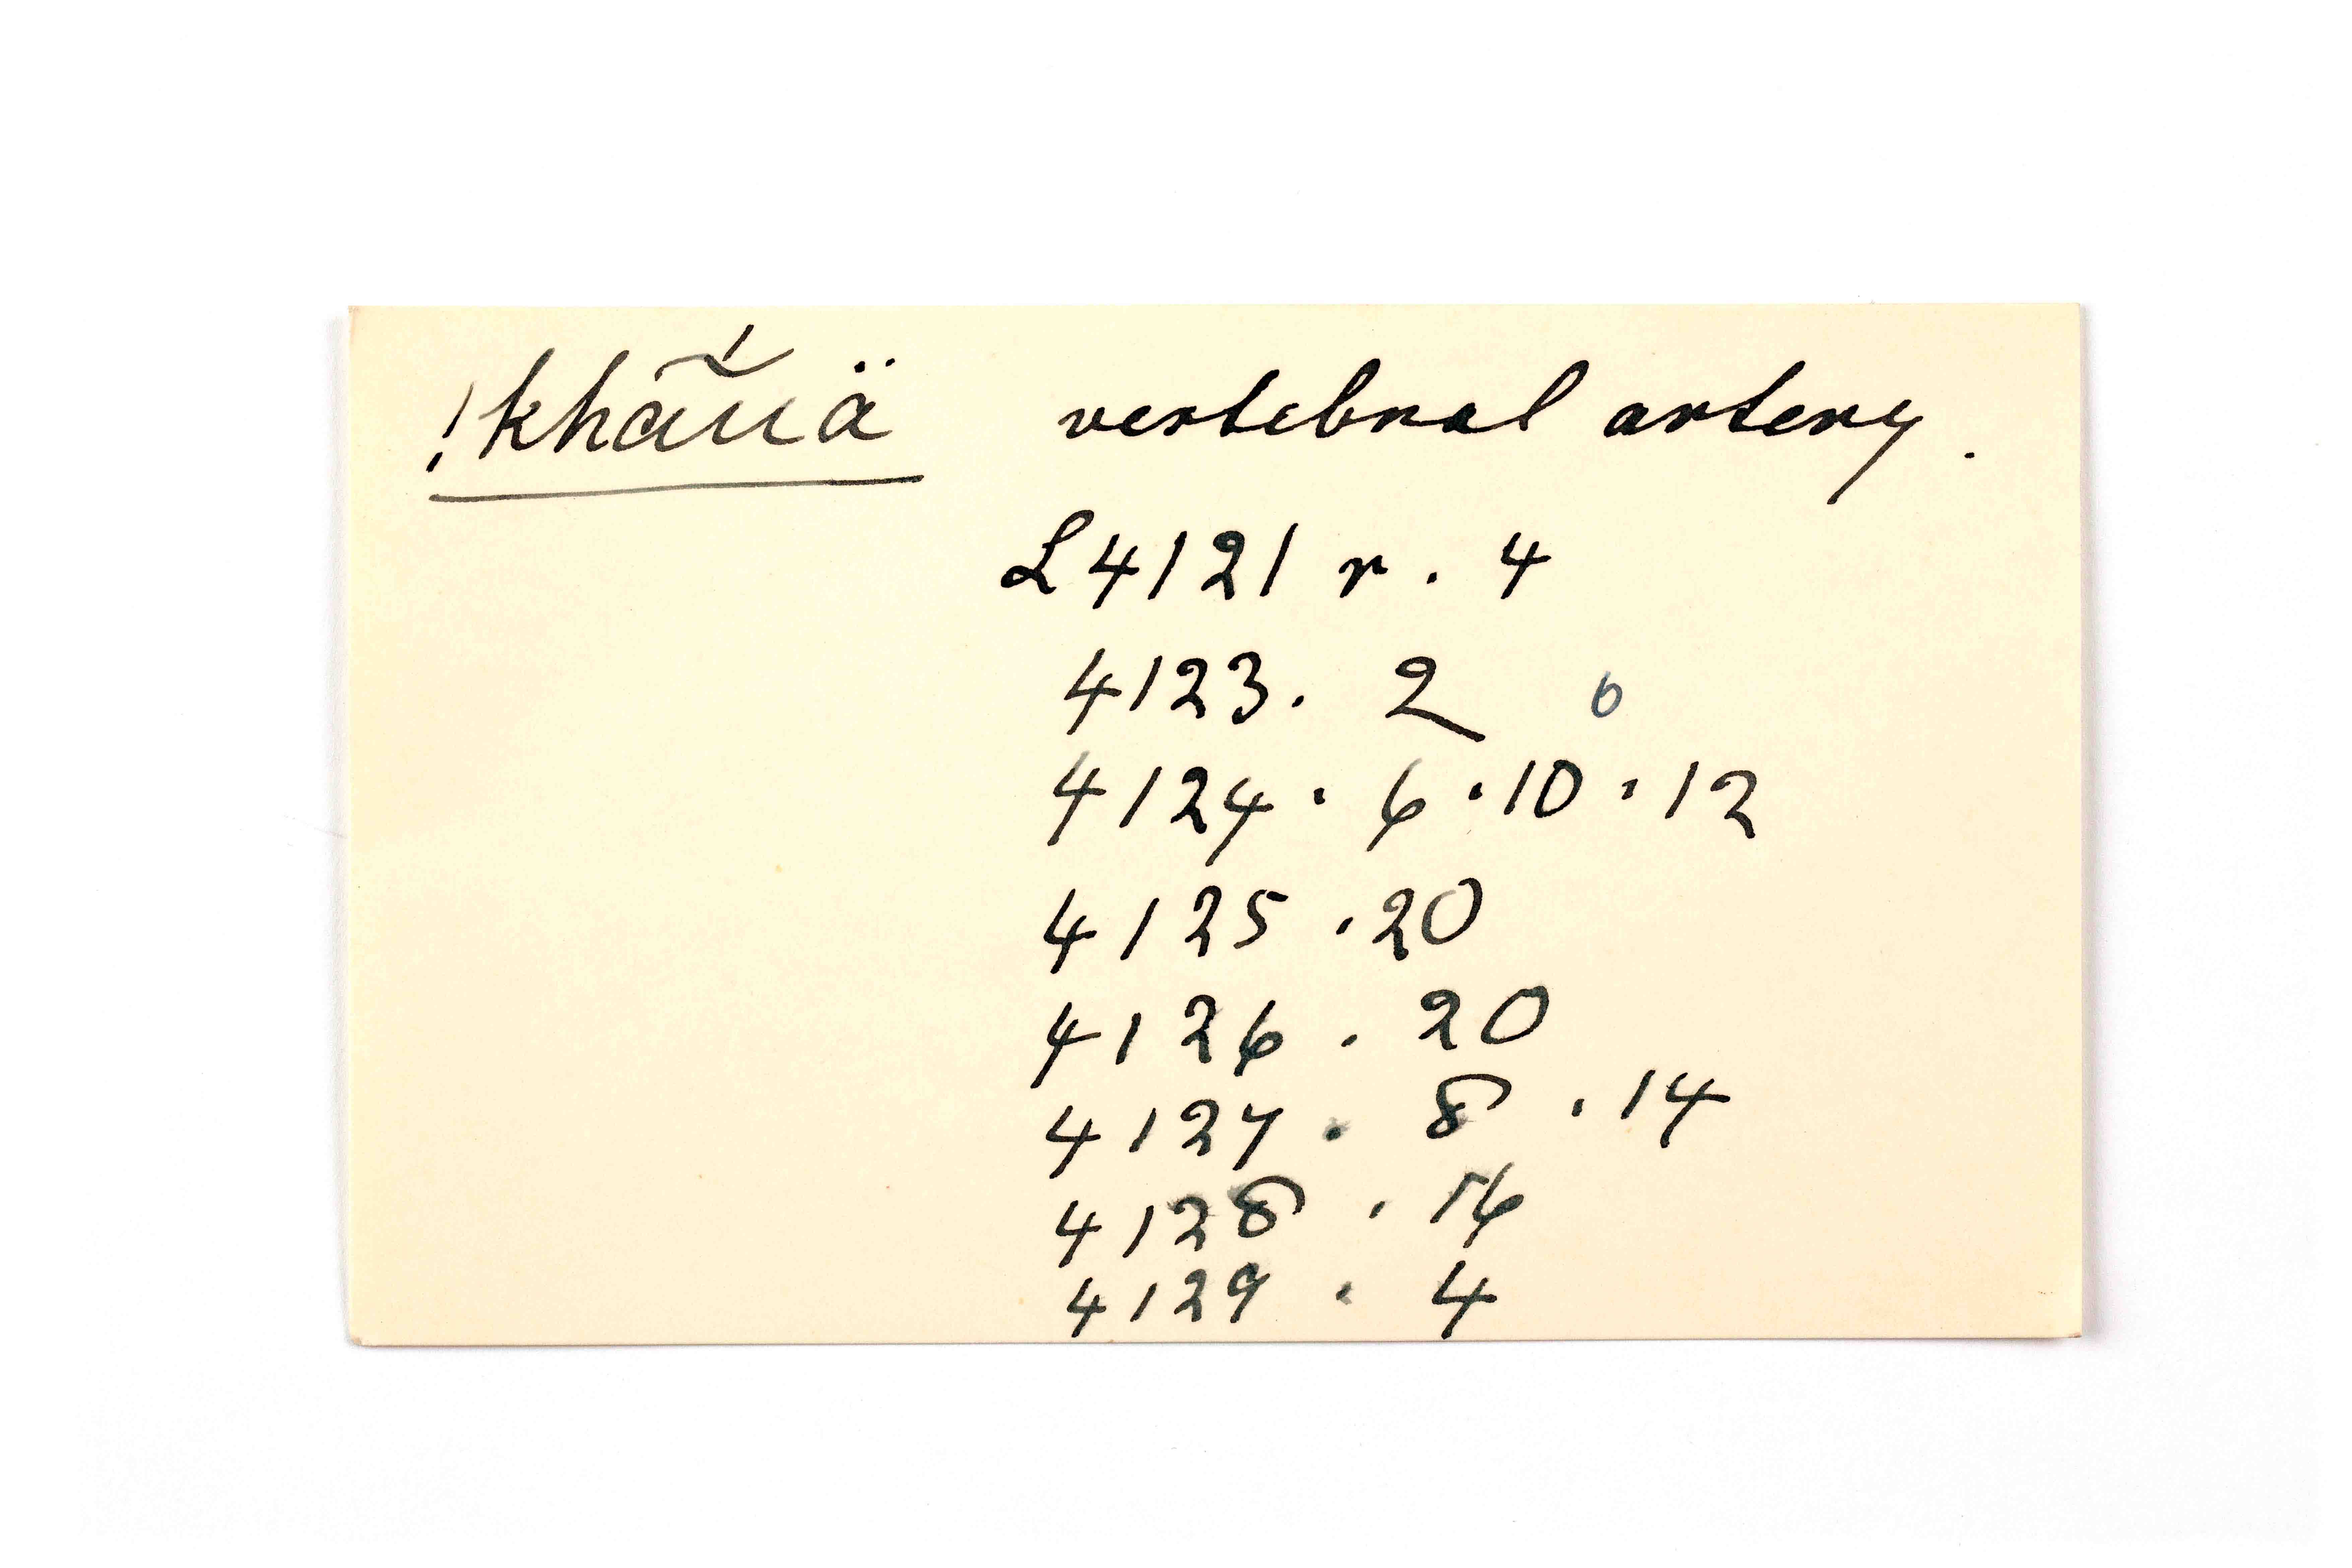 !khã́ũä vertebral artery.
L4121 r. 4
4123. 2 6
4124. 6. 10. 12
4125. 20
4126. 20
4127. 8. 14
4128. 16
4129. 4